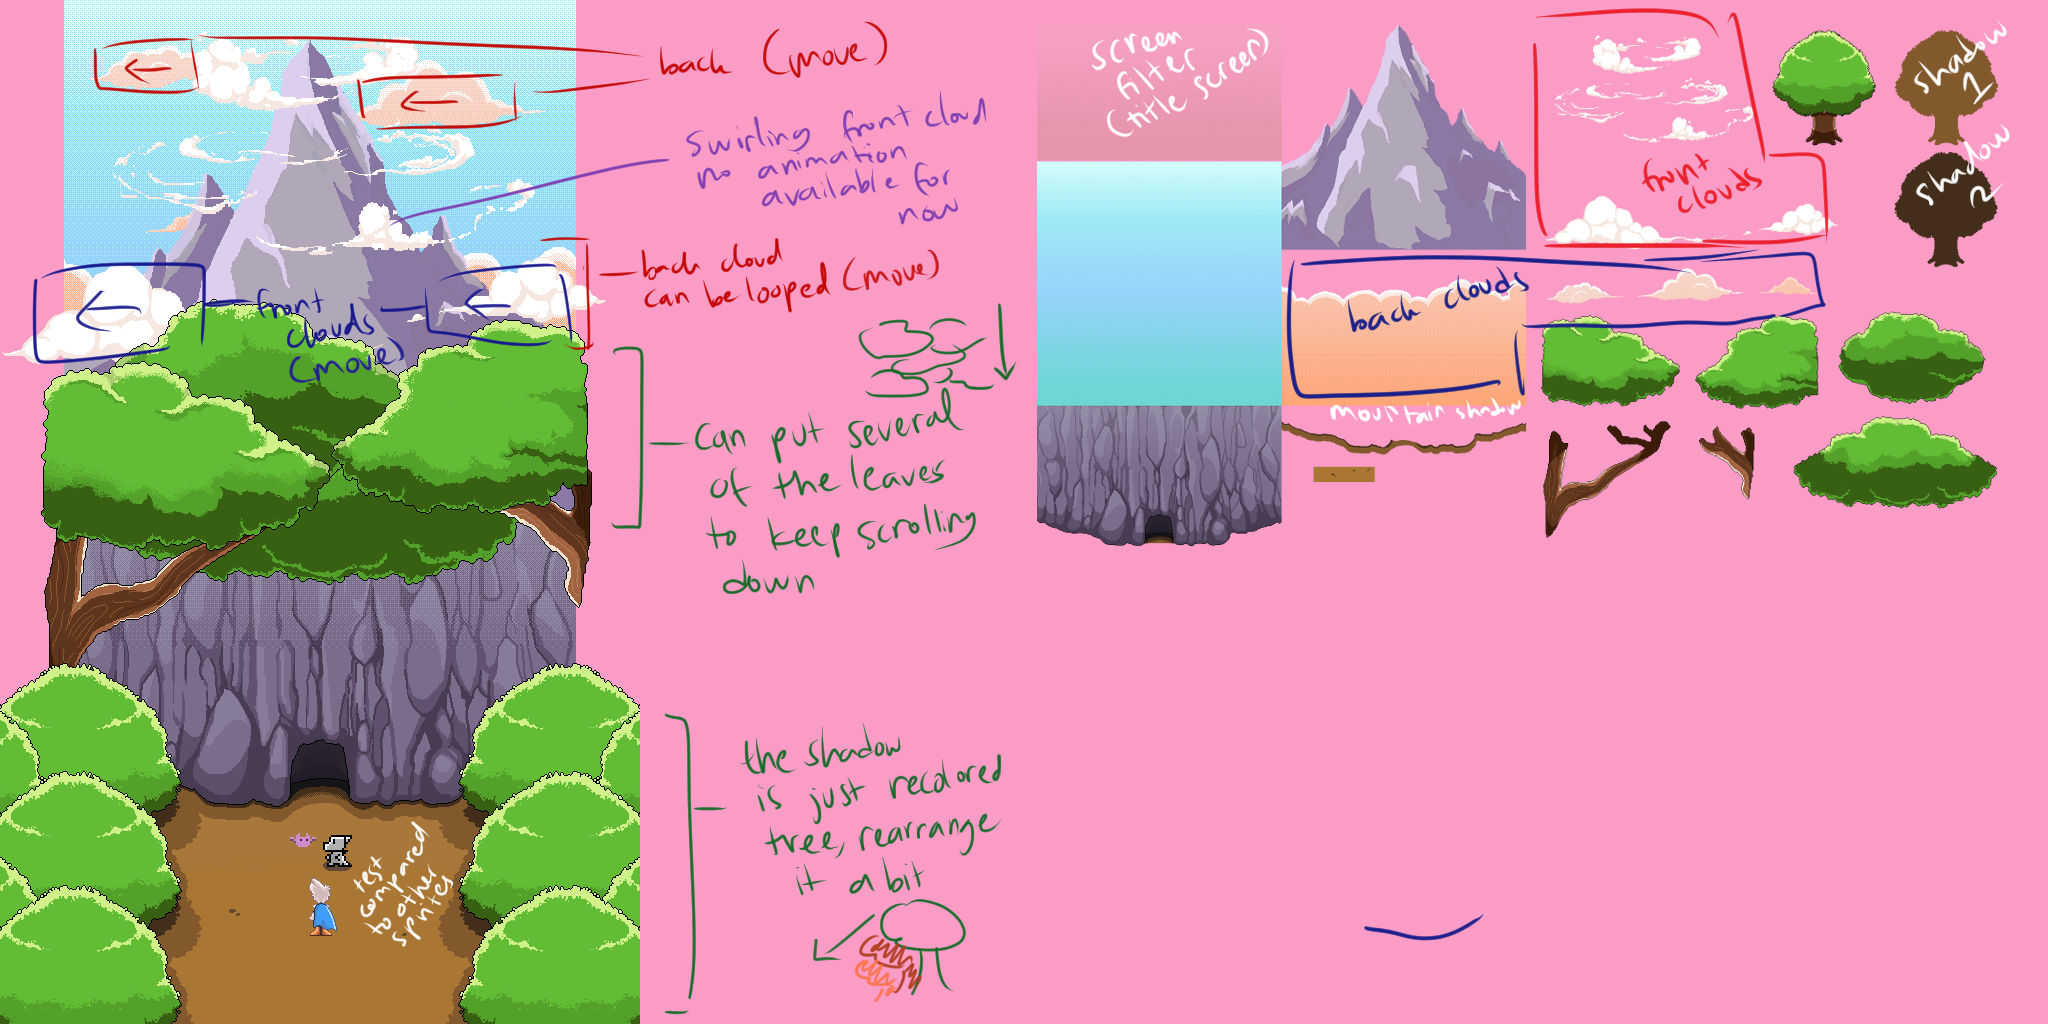 back (move)
swirling front cloud
no animation
available for
now
back cloud
can be looped (move)
front
clouds
(move)
Can put several
of the leaves
to keep scrolling
down
the shadow
is just recolored
tree, rearrange
it a bit
test
compared
to other
sprites
screen
filter
(title screen)
front
clouds
shadow
1
shadow
2
back clouds
mountain shadow